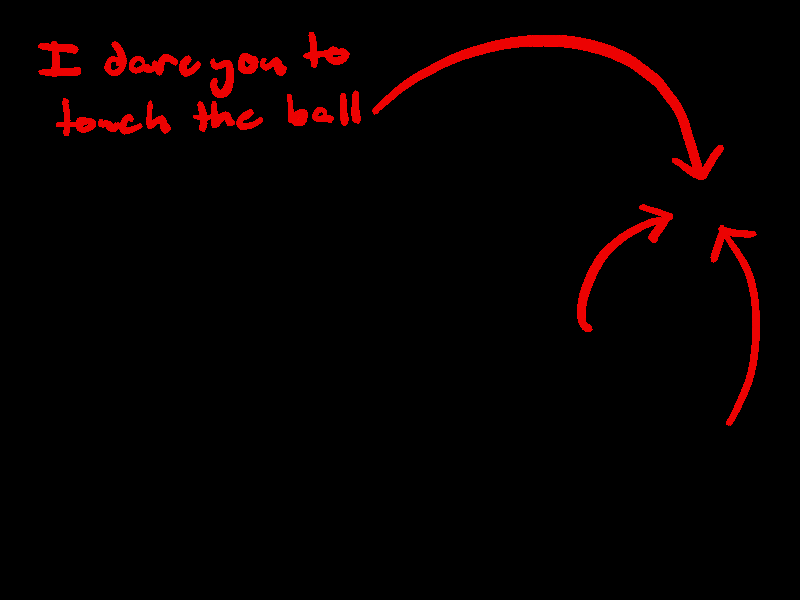 I dare you to
touch the ball